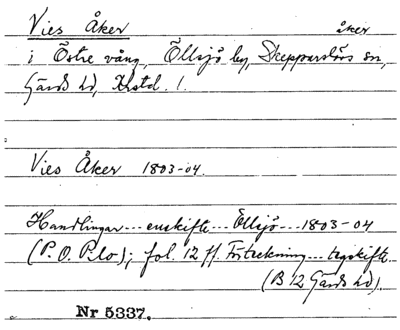 Vies Åker åker
i Östre vång, Öllsjö by, Skepparslövs sn,
Gärds hd, Krstd. l.
Vies Åker 1803-04.
Handlingar --- enskifte --- Öllsjö --- 1803-04
(P.O. Pilo); fol. 12 ff. Förteckning --- tegskifte
(B 12 Gärds hd).
Nr 5337.